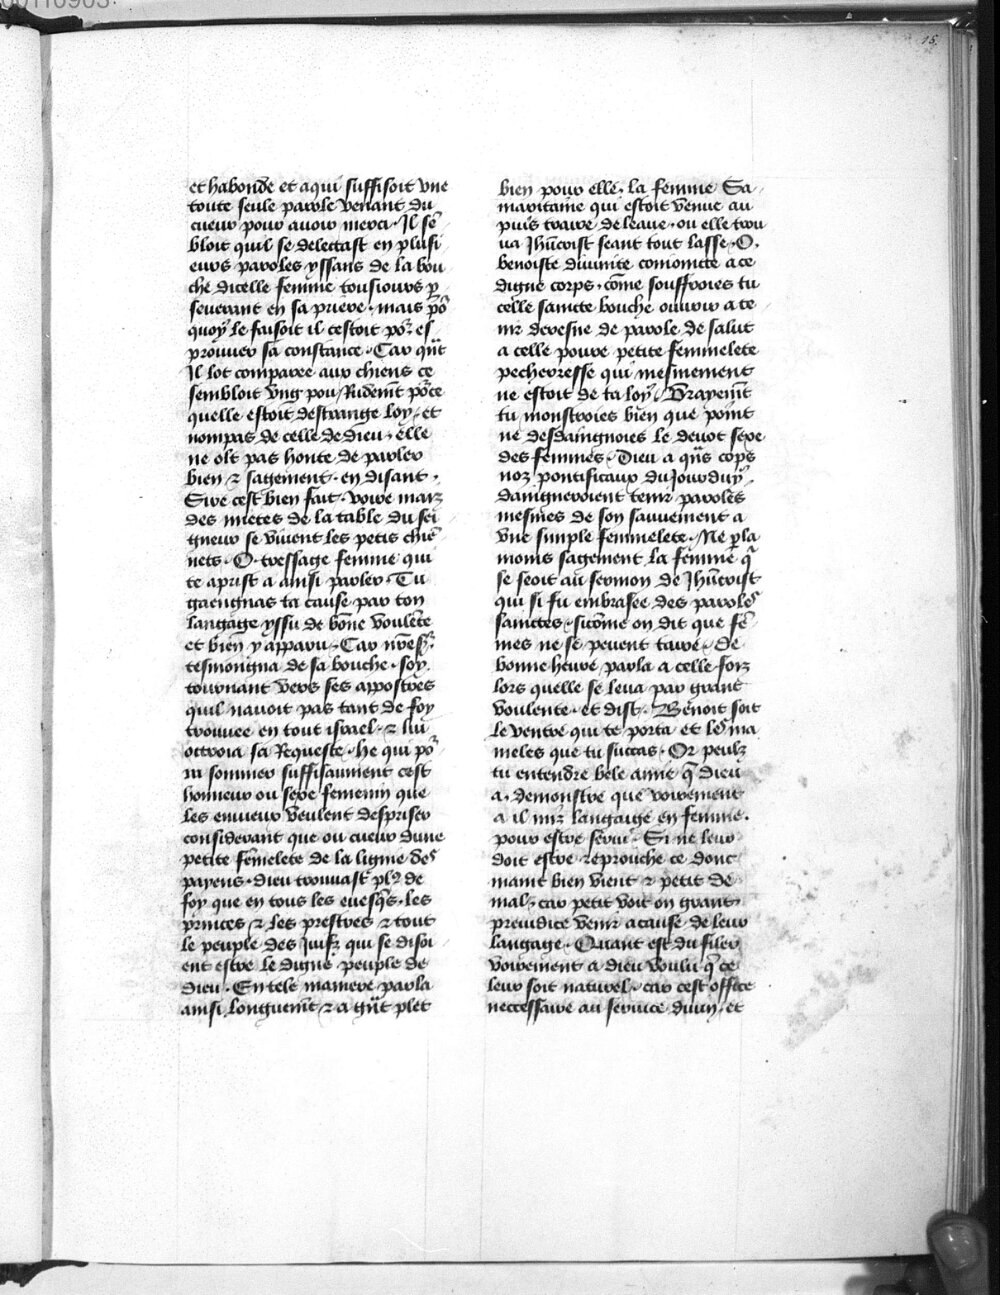 15
et habonde et a qui suffisoit vne
toute seule parole venant du
cueur pour auoir merci · Il sē
bloit quil se delectast en plusi
eurs paroles yssans de la bou
che dicelle femme tousiours p
seuerant en sa priere · mais po᷑
quoy le faisoit il cestoit po᷑ es
prouuer sa constance · Car qn̄t
Il lot comparee aux chiens ce
sembloit vng pou Ridem̄t po᷑ce
quelle estoit destrange loy · et
nompas de celle de dieu · elle
ne ot pas honte de parler
bien ⁊ sagement · en disant ·
Sire cest bien fait · voire mais
des mietes de la table du sei
gneur se viuent les petis chiē
nets · O · tressage femme qui
te aprist a ainsi parler · Tu
gaengnas ta cause par ton
langage yssu de bōne voulēte
et bien y apparu · Car nr̄es᷑
tesmoingna de sa bouche · soy
tournant vers ses appostres
quil nauoit pas tant de foy
trouuee en tout israel · ⁊ lui
ottroia sa Requeste · he qui po᷑
ra sommer suffisaument cest
honneur ou sexe femenin que
les enuieux veulent despriser
considerant que ou cueur dune
petite fēmelete de la lignie des
payens · dieu trouuast pl9 de
foy que en tous les euesq̄s · les
princes ⁊ les prestres ⁊ tout
le peuple des Juifz qui se disoi
ent estre le digne peuple de
dieu · En tele maniere parla
ainsi longuem̄t ⁊ a gn̄t plet
bien pour elle · la femme Sa
maritaine qui estoit venue au
puis traire de leaue · ou elle trou
ua Jhūcrist seant tout lasse · O ·
benoiste diuinite conioincte a ce
digne corps · cōme souffroies tu
celle saincte bouche ouurir a te
nir deresne de parole de salut
a celle poure petite femmelete
pecheresse qui mesmement
ne estoit de ta loy · Vrayem̄t
tu monstroies bien que point
ne desdaingnoies le deuot sexe
des femmes · Dieu a qn̄s cops
noz pontificaux du Jourduy
daingneroient tenir paroles
mesmes de son sauuement a
vne simple femmelete · Ne p la
moins sagement la femme q̄
se seoit au sermon de Jhūcrist
qui si fu embrasee des paroles
sainctes · si cōme on dit que fē
mes ne se peuent taire · de
bonne heure parla a celle foiz
lors quelle se leua par grant
voulente · et dist · Benoit soit
le ventre qui te porta et les ma
meles que tu succas · Or peulz
tu entendre bele amie q̄ dieu
a · demonstre que voirement
a il mis langaige en femme ·
pour estre serui · Si ne leur
doit estre reprouche ce dont
maint bien vient ⁊ petit de
mal · car petit voit on grant
preiudice venir a cause de leur
langage · Quant est du filer
voirement a dieu voulu q̄ ce
leur soit naturel · car cest office
neccessaire au seruice diuin · et